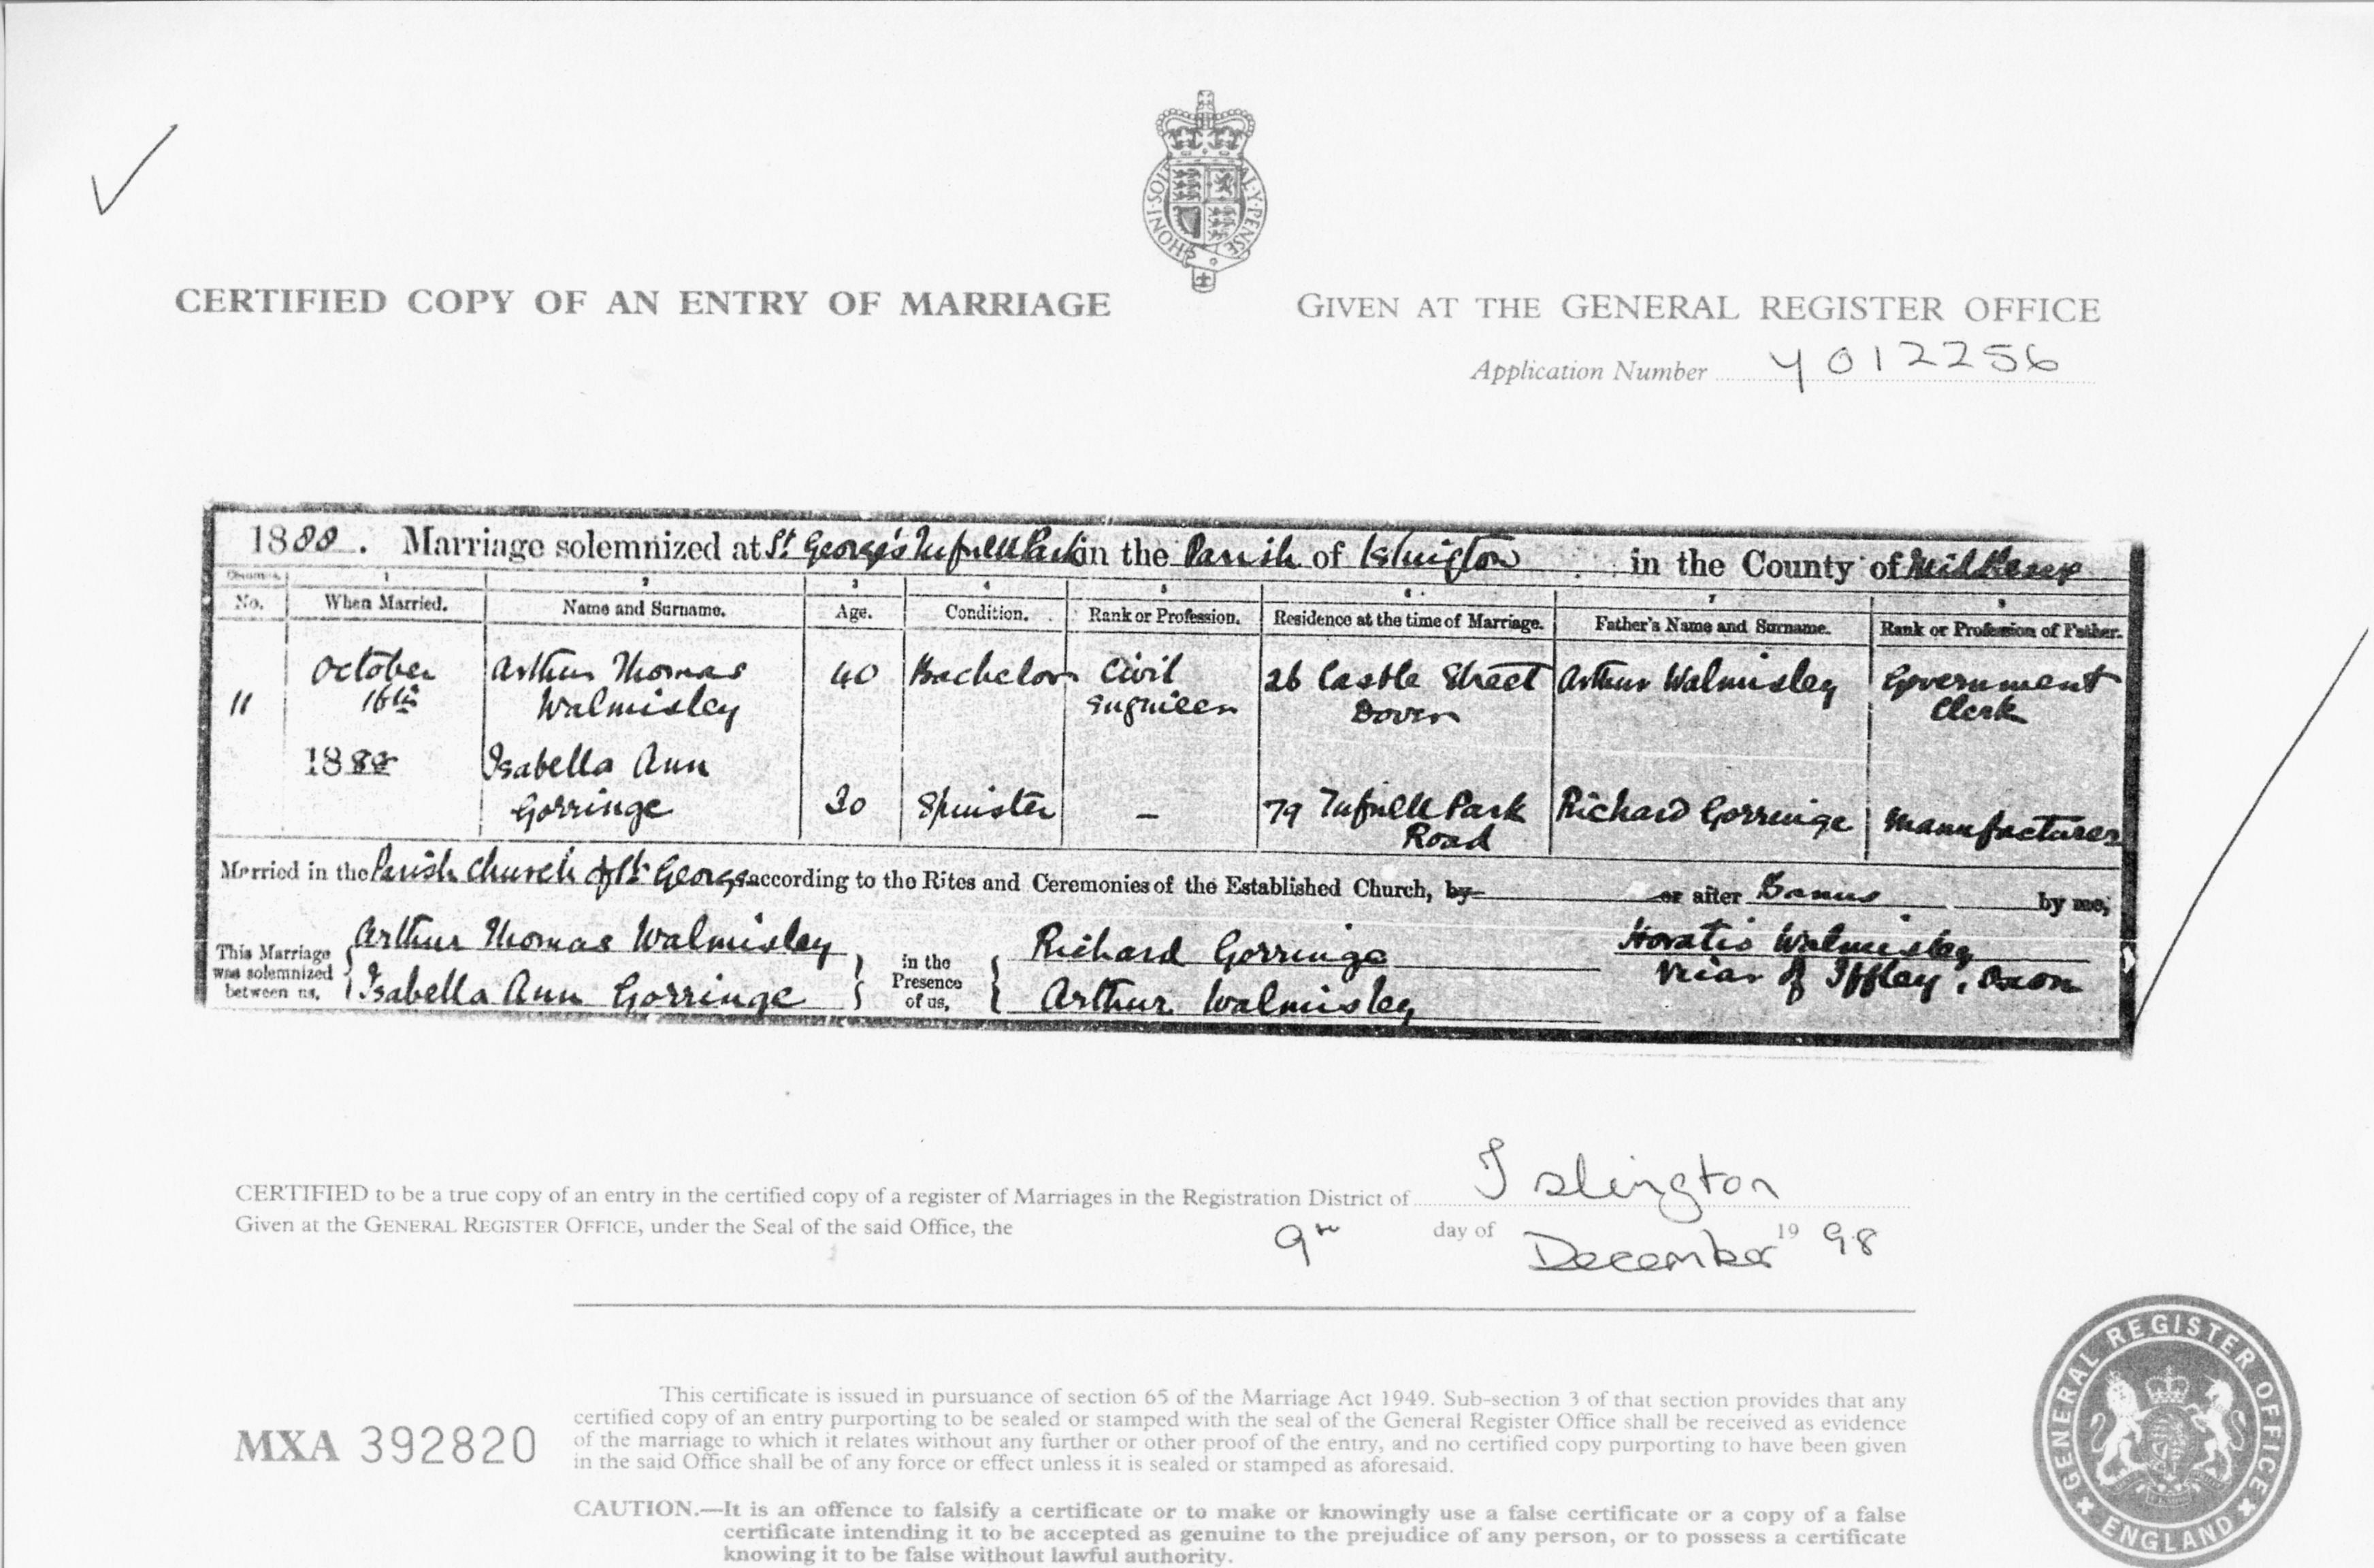 HONI·SOIT
AL·Y·PENSE
CERTIFIED COPY OF AN ENTRY OF MARRIAGE
GIVEN AT THE GENERAL REGISTER OFFICE
Application Number Y012256
1888. Marriage solemnized at St. George's Tufnell Park in the Parish of Islington in the County of Middlesex
1 2 3 4 5 6 7 8
No. When Married. Name and Surname. Age. Condition. Rank or Profession. Residence at the time of Marriage. Father's Name and Surname. Rank or Profession of Father.
October Arthur Thomas 40 Bachelor Civil 26 Castle Street Arthur Walmisley Government
11 16th Walmisley Engineer Dover Clerk
1888 Isabella Ann
Gorringe 30 Spinster – 79 Tufnell Park Richard Gorringe Manufacturer
Road
Married in the Parish Church of St. George according to the Rites and Ceremonies of the Established Church, by or after Banns by me,
This Marriage was solemnized between us, Arthur Thomas Walmisley in the Presence of us, Richard Gorringe Horatio Walmisley
Isabella Ann Gorringe Arthur Walmisley Vicar of Iffley, Oxon
CERTIFIED to be a true copy of an entry in the certified copy of a register of Marriages in the Registration District of Islington
Given at the GENERAL REGISTER OFFICE, under the Seal of the said Office, the 9th day of December 1998
This certificate is issued in pursuance of section 65 of the Marriage Act 1949. Sub-section 3 of that section provides that any
certified copy of an entry purporting to be sealed or stamped with the seal of the General Register Office shall be received as evidence
of the marriage to which it relates without any further or other proof of the entry, and no certified copy purporting to have been given
in the said Office shall be of any force or effect unless it is sealed or stamped as aforesaid.
MXA 392820
CAUTION.—It is an offence to falsify a certificate or to make or knowingly use a false certificate or a copy of a false
certificate intending it to be accepted as genuine to the prejudice of any person, or to possess a certificate
knowing it to be false without lawful authority.
GENERAL REGISTER OFFICE
ENGLAND